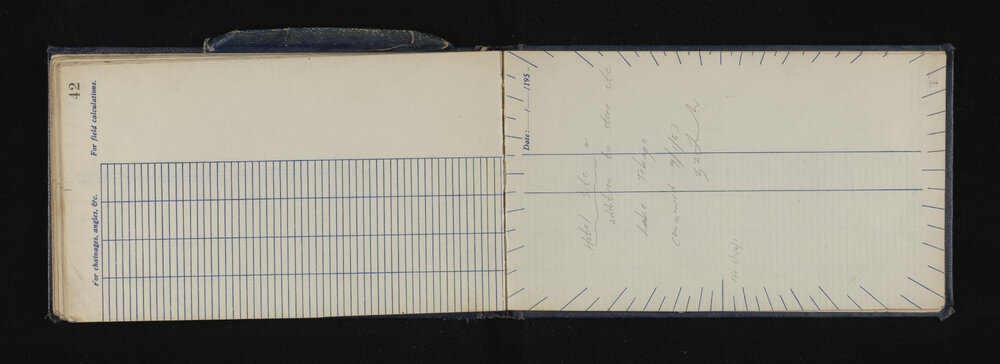 42
For field calculations.
For chainages, angles, &c.
Date: / /195
Hotel Site
addition to store site
Lake Tekapo
Commenced